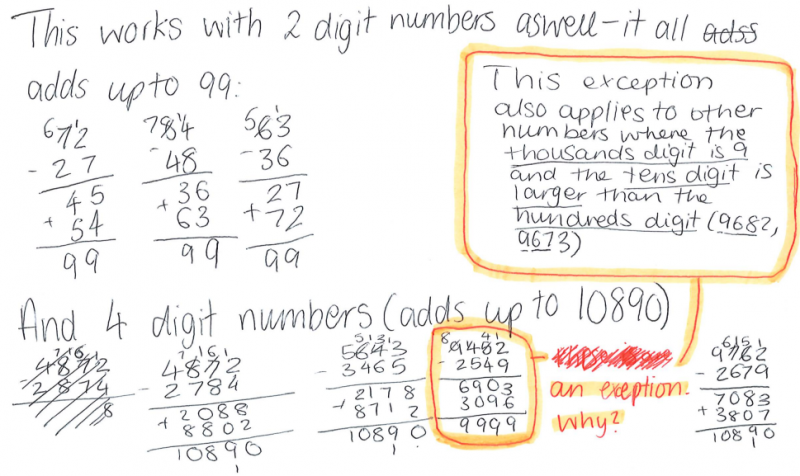 This works with 2 digit numbers aswell - it all adss
adds up to 99:
72
- 27
45
+ 54
99
84
- 48
36
+ 63
99
63
- 36
27
+ 72
99
This exception
also applies to other
numbers where the
thousands digit is 9
and the tens digit is
larger than the
hundreds digit (9682,
9673)
And 4 digit numbers (adds up to 10890)
4872
- 2784
2088
+ 8802
10890
5643
- 3465
2178
+ 8712
10890
9452
- 2549
6903
3096
9999
an exception.
Why?
9762
- 2679
7083
+ 3807
10890